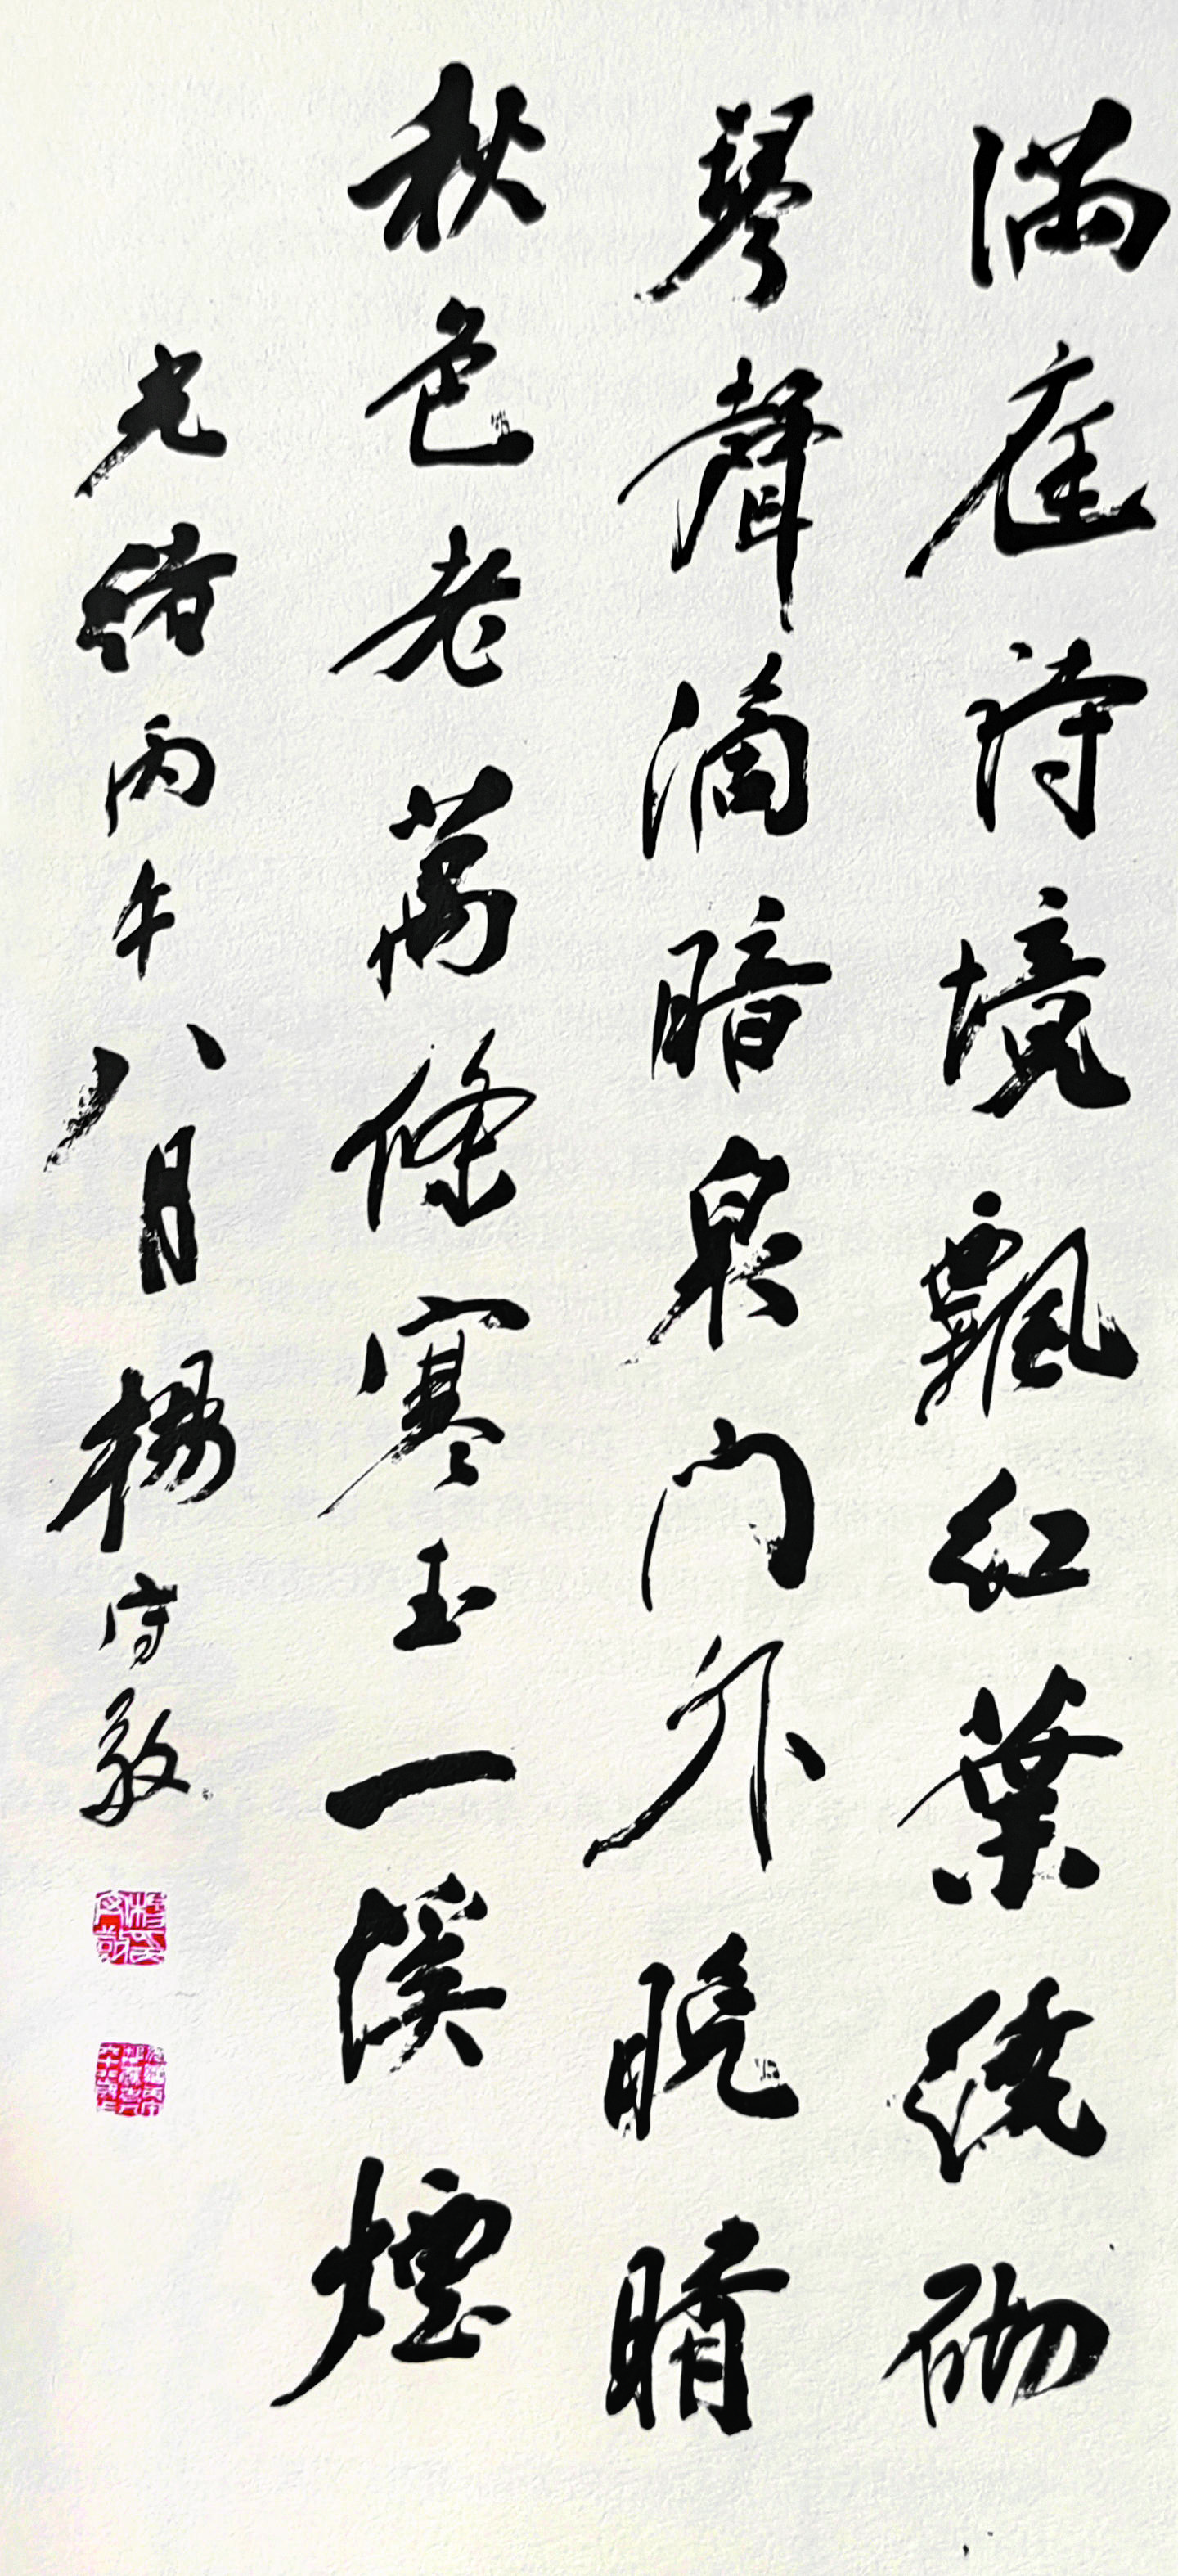 满庭诗境飘红葉繞砌
琴聲滴暗泉门外晚晴
秋色老萬條寒玉一溪煙
光緒丙午八月楊守敬